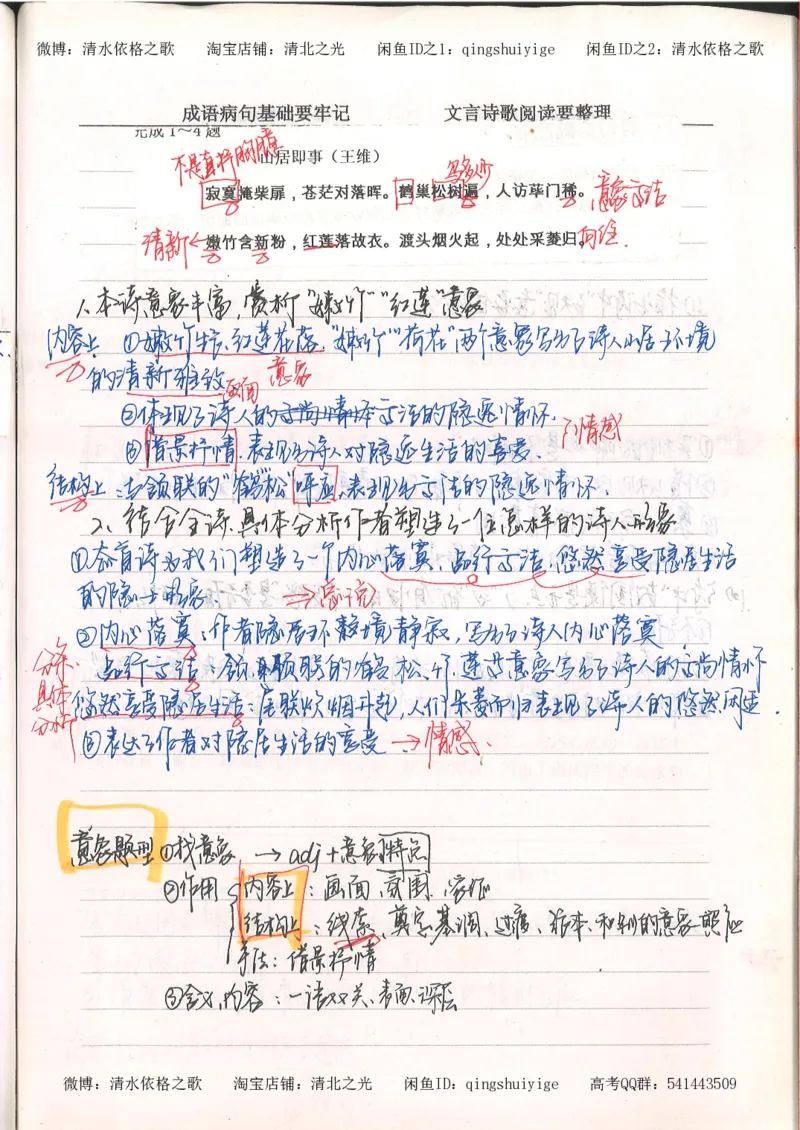 微博：清水依格之歌 淘宝店铺：清北之光 闲鱼ID之1：qingshuiyige 闲鱼ID之2：清水依格之歌
成语病句基础要牢记 文言诗歌阅读要整理
完成1～4题
山居即事（王维）
寂寞掩柴扉，苍茫对落晖。鹤巢松树遍，人访荜门稀。
清新←嫩竹含新粉，红莲落故衣。渡头烟火起，处处采菱归。
1、本诗意象丰富，赏析"嫩竹""红莲"意象
内容上 ①嫩竹生长、红莲花落，"嫩竹""荷花"两个意象写出了诗人山居环境
的清新雅致 画面 意象
②体现了诗人的高洁的隐逸情怀.
③借景抒情，表现出诗人对隐逸生活的喜爱. 情感
结构上：与颔联的"鹤""松"呼应，表现出高洁的隐逸情怀.
2、结合全诗，具体分析作者塑造了一个怎样的诗人形象
①本首诗为我们塑造了一个内心落寞、品行高洁、悠然享受隐居生活
的隐士形象. →总说
②内心落寞：作者隐居环境静寂，写出了诗人内心落寞
品行高洁：颔联颈联的鹤、松、竹、莲等意象写出了诗人的高尚情怀
悠然享受隐居生活：尾联炊烟升起，人们采菱而归表现了诗人的悠然闲适.
分条具体分析
③表达了作者对隐居生活的喜爱→情感.
意象题型 ①找意象 → adj+意象特点
②作用 内容上：画面、氛围、
结构上：线索、奠定基调、过渡、和别的意象照应
手法：借景抒情
③含义、内容：一语双关、表面、深层
微博：清水依格之歌 淘宝店铺：清北之光 闲鱼ID：qingshuiyige 高考QQ群：541443509